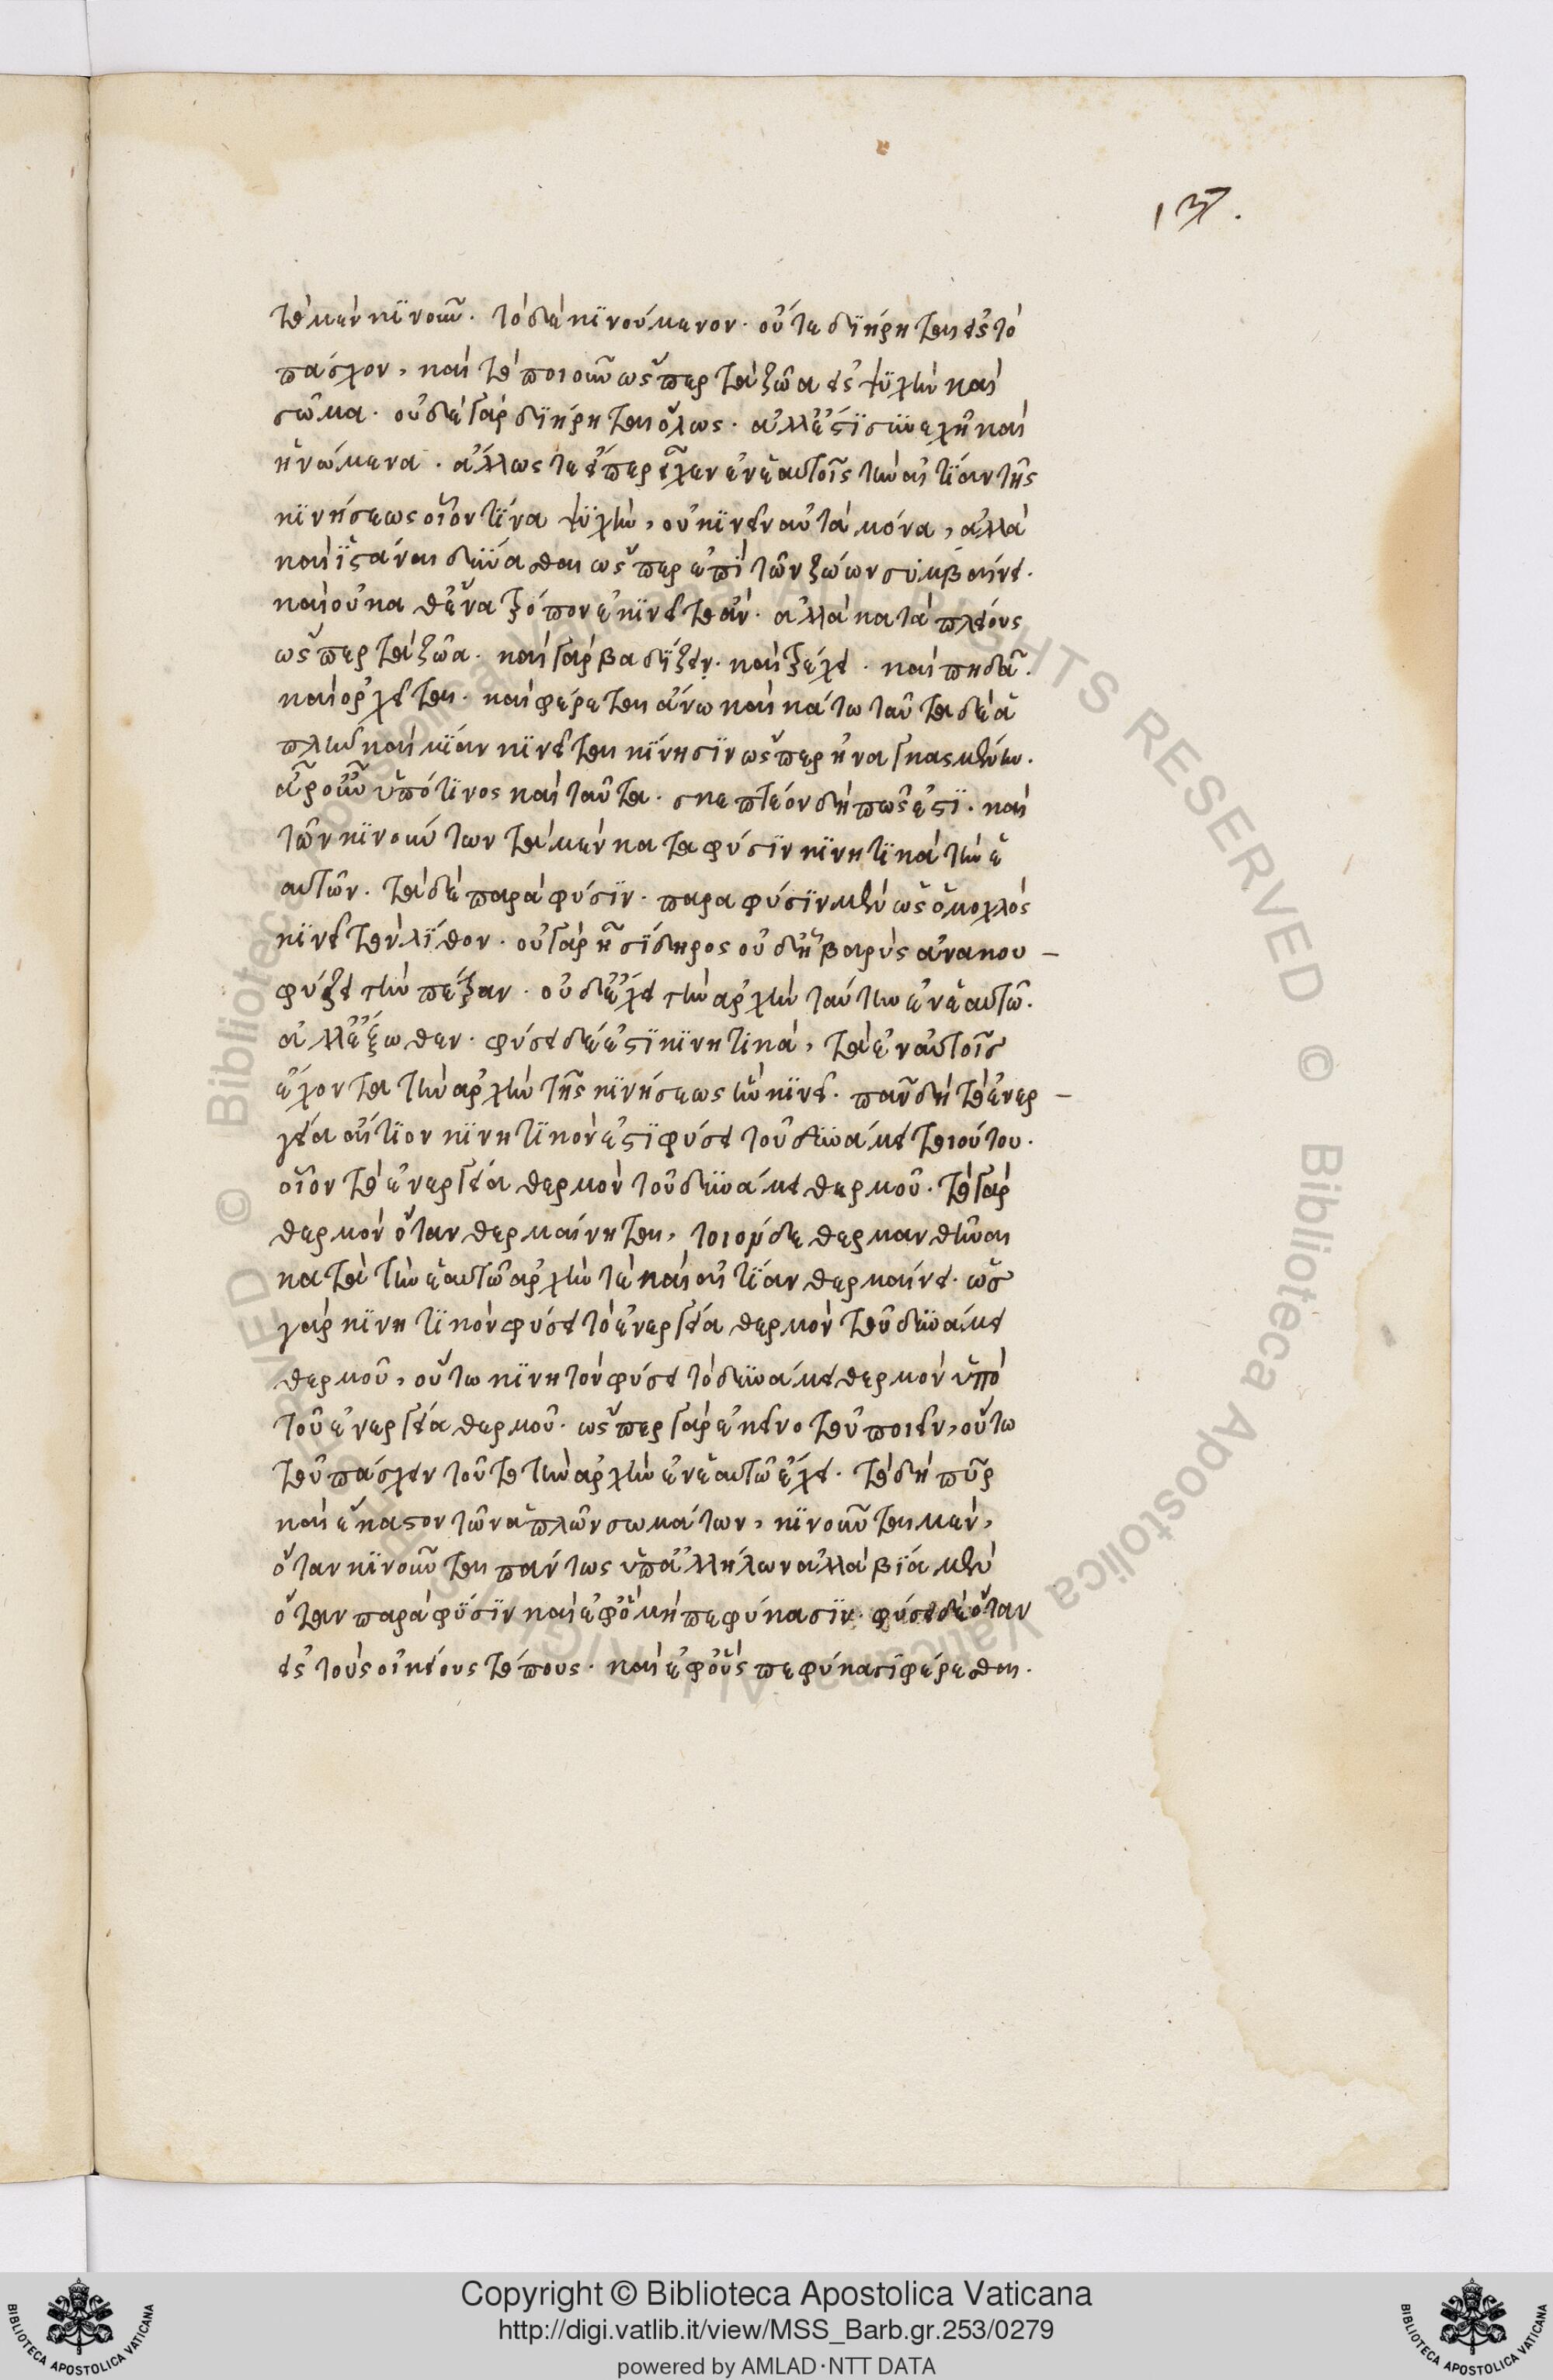 137.
τὸ μὲν κινοῦν· τὸ δὲ κινούμενον· οὔτε διήρηται εἰς τὸ
πάσχον, καὶ τὸ ποιοῦν ὥσπερ τὰ ζῶα εἰς ψυχὴν καὶ
σῶμα· οὐδὲ γὰρ διήρηται ὅλως· ἀλλ' ἐστὶ συνεχῆ καὶ
ἡνωμένα· ἄλλως τε εἴπερ εἶχεν ἐν ἑαυτοῖς τὴν αἰτίαν τῆς
κινήσεως οἷον τινα ψυχὴν, οὐ κινεῖν αὐτὰ μόνα, ἀλλὰ
καὶ ἱστάναι δύνασθαι ὥσπερ ἐπὶ τῶν ζώων συμβαίνει·
καὶ οὐ καθ' ἕνα τρόπον ἐκινεῖτο ἂν· ἀλλὰ κατὰ πλείους
ὥσπερ τὰ ζῶα· καὶ γὰρ βαδίζειν· καὶ τρέχει· καὶ πηδᾶ·
καὶ ὀρχεῖται· καὶ φέρεται ἄνω καὶ κάτω ταῦτα δὲ ἁ
πλῆν καὶ μίαν κινεῖται κίνησιν ὥσπερ ἠναγκασμένω·
ἆρ' οὖν ὑπό τινος καὶ ταῦτα· σκεπτέον δὴ πῶς ἐστι· καὶ
τῶν κινούντων τὰ μὲν κατὰ φύσιν κινητικὰ τὴν ἑ
αυτῶν· τὰ δὲ παρὰ φύσιν· παρὰ φύσιν μὲν ὡς ὁ μοχλὸς
κινεῖ τὸν λίθον· οὐ γὰρ ᾗ σίδηρος οὐδ' ᾗ βαρὺς ἀνακου-
φίζει τὴν πέτραν· οὐδ' ἔχει τὴν ἀρχὴν ταύτην ἐν ἑαυτῶ·
ἀλλ' ἔξωθεν· φύσει δέ ἐστι κινητικὰ, τὰ ἐν αὐτοῖς
ἔχοντα τὴν ἀρχὴν τῆς κινήσεως ἣν κινεῖ· πᾶν δὴ τὸ ἐνερ-
γείᾳ αἴτιον κινητικόν ἐστι φύσει τοῦ δυνάμει τοιούτου·
οἷον τὸ ἐνεργείᾳ θερμὸν τοῦ δυνάμει θερμοῦ· τὸ γὰρ
θερμὸν ὅταν θερμαίνηται, τοιόνδε θερμανθῆναι
κατὰ τὴν ἑαυτῶ ἀρχήν τε καὶ αἰτίαν θερμαίνει· ὡς
γὰρ κινητικὸν φύσει τὸ ἐνεργείᾳ θερμὸν τοῦ δυνάμει
θερμοῦ, οὕτω κινητὸν φύσει τὸ δυνάμει θερμὸν ὑπὸ
τοῦ ἐνεργείᾳ θερμοῦ· ὥσπερ γὰρ ἐκεῖνο τοῦ ποιεῖν, οὕτω
τοῦ πάσχειν τοῦτο τὴν ἀρχὴν ἐν ἑαυτῶ ἔχει· τὸ δὴ πῦρ
καὶ ἕκαστον τῶν ἁπλῶν σωμάτων, κινοῦνται μὲν,
ὅταν κινοῦνται πάντως ὑπ' ἀλλήλων ἀλλὰ βίᾳ μὲν
ὅταν παρὰ φύσιν καὶ ἐφ' ὃ μὴ πεφύκασιν· φύσει δὲ ὅταν
εἰς τοὺς οἰκείους τόπους· καὶ ἐφ' οὓς πεφύκασι φέρεσθαι·
Copyright © Biblioteca Apostolica Vaticana
http://digi.vatlib.it/view/MSS_Barb.gr.253/0279
powered by AMLAD·NTT DATA